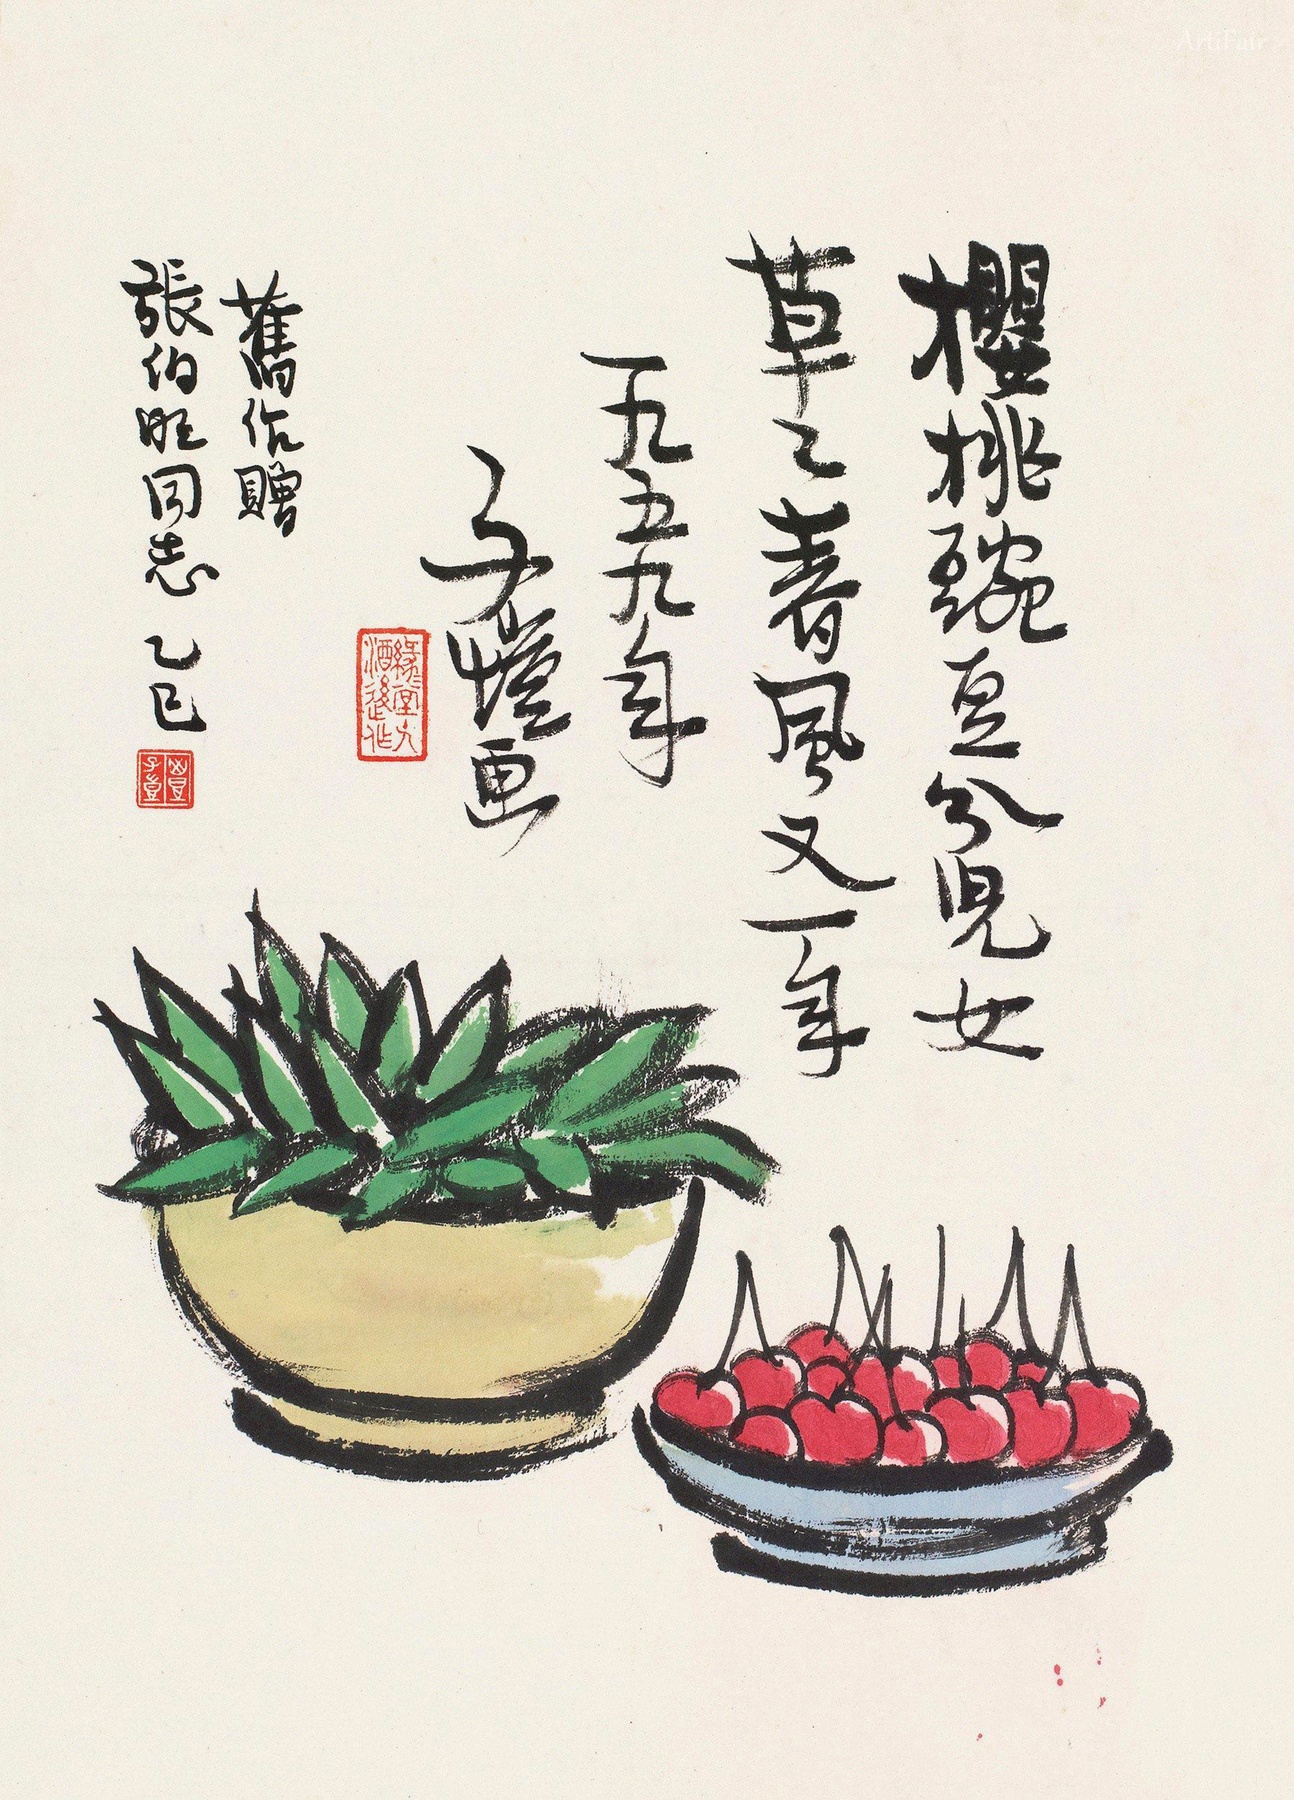 櫻桃豌豆分兒女
草々春風又一年
一九五九年
子愷画
緣堂
酒後作
舊作贈
張伯旺同志 乙巳
豐
子愷
ArtiFair